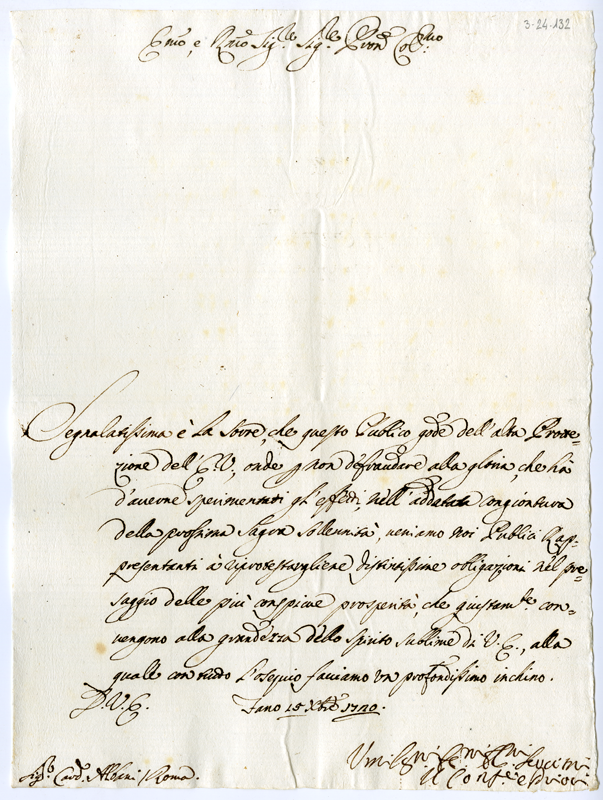 3-24-132
Emo, e Rmo Sig.re Sig.re Pron Colmo
Segnalatissima è la sorte, che questo Publico gode dell'alta Prote-
zione dell'E.V., onde p non defraudare alla gloria, che hà
d'averne sperimentati gl'effetti, nell'addatata congiontura
della prossima Sagra Sollennità, veniamo noi Publici Rap-
presentanti à riprotestargliene distintissime obligazioni nel pre-
saggio delle più conspicue prosperità, che giustamte con-
vengono alla grandezza dello spirito sublime di V.E., alla
quale con tutto l'ossequio facciamo un profondissimo inchino.
D.V.E. Fano 15 Xbre 1720.
Sigr Card. Albani Roma.
Il Conf.re e Priori